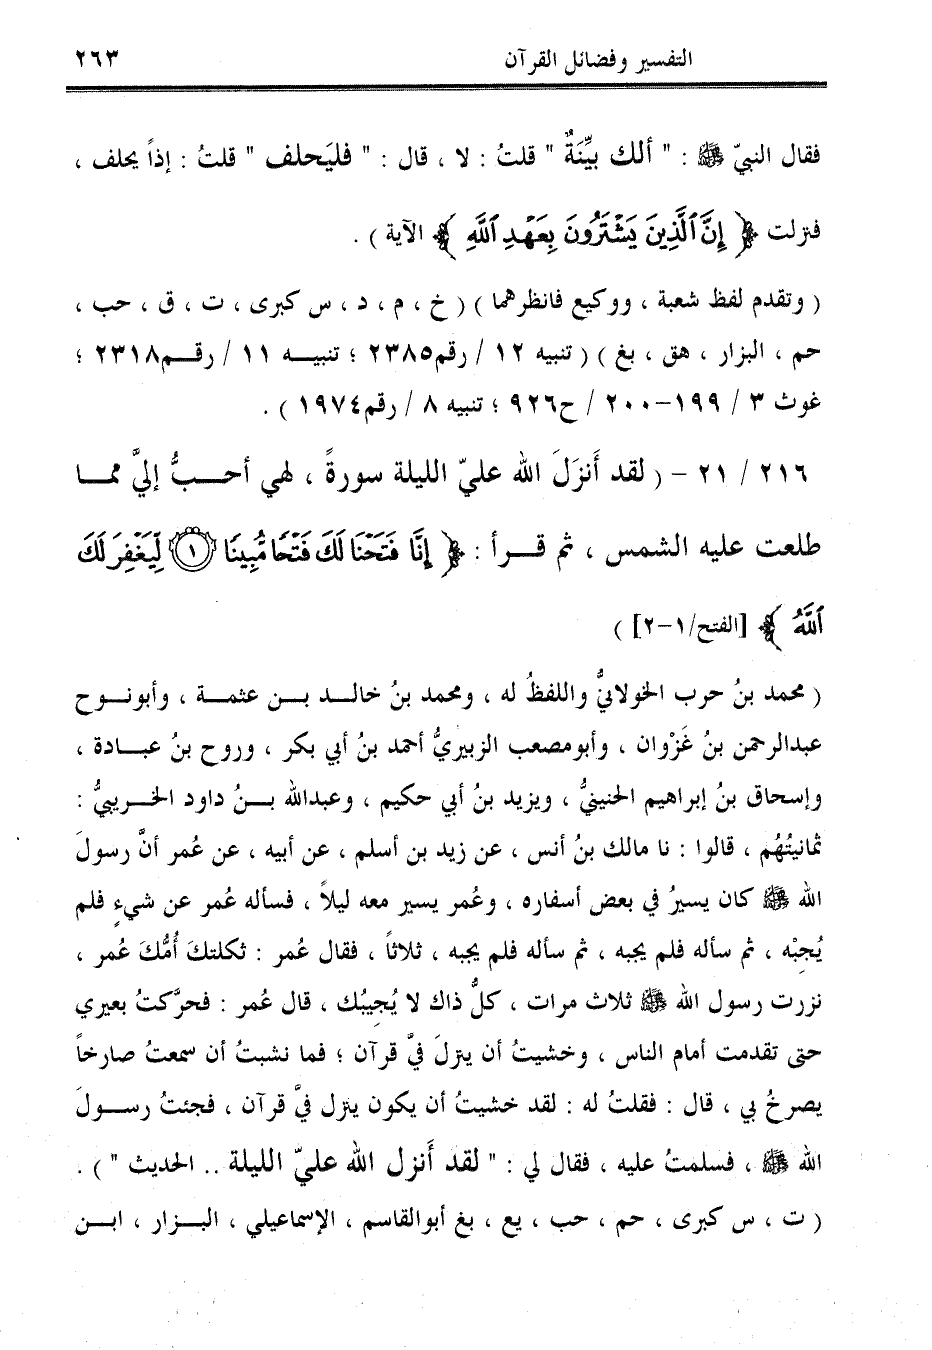 التفسير وفضائل القرآن ٢٦٣
فقال النبيّ ﷺ : " ألك بيِّنَةٌ " قلتُ : لا ، قال : " فليَحلف " قلتُ : إذاً يحلف ،
فنزلت ﴿ إِنَّ ٱلَّذِينَ يَشْتَرُونَ بِعَهْدِ ٱللَّهِ ﴾ الآية ) .
( وتقدم لفظ شعبة ، ووكيع فانظرهما ) ( خ ، م ، د ، س كبرى ، ت ، ق ، حب ،
حم ، البزار ، هق ، بغ ) ( تنبيه ١٢ / رقم٢٣٨٥ ؛ تنبيـــه ١١ / رقـــم٢٣١٨ ؛
غوث ٣ / ١٩٩-٢٠٠ / ح٩٢٦ ؛ تنبيه ٨ / رقم١٩٧٤ ) .
٢١٦ / ٢١ - ( لقد أَنزَلَ الله عليّ الليلة سورةً ، لهي أحـــبُّ إليَّ ممـــا
طلعت عليه الشمس ، ثم قـــرأ : ﴿ إِنَّا فَتَحْنَا لَكَ فَتْحًا مُّبِينًا ١ لِّيَغْفِرَ لَكَ
ٱللَّهُ ﴾ [الفتح/١-٢] )
( محمد بنُ حرب الخولانيُّ واللفظُ له ، ومحمد بنُ خالـــد بـــن عثمـــة ، وأبونـــوح
عبدالرحمن بنُ غَزْوان ، وأبومصعب الزبيريُّ أحمد بنُ أبي بكر ، وروح بنُ عبـــادة ،
وإسحاق بنُ إبراهيم الحنينيُّ ، ويزيد بنُ أبي حكيم ، وعبدالله بـــنُ داود الخـــريبيُّ :
ثمانيتُهُم ، قالوا : نا مالك بنُ أنس ، عن زيد بن أسلم ، عن أبيه ، عن عُمر أنَّ رسولَ
الله ﷺ كان يسيرُ في بعض أسفاره ، وعُمر يسير معه ليلاً ، فسأله عُمر عن شيءٍ فلم
يُجبْه ، ثم سأله فلم يجبه ، ثم سأله فلم يجبه ، ثلاثاً ، فقال عُمر : ثكلتكَ أُمُّكَ عُمر ،
نزرت رسول الله ﷺ ثلاث مرات ، كلُّ ذاك لا يُجيبُك ، قال عُمر : فحرَّكتُ بعيري
حتى تقدمت أمام الناس ، وخشيتُ أن ينزلَ فيَّ قرآن ؛ فما نشبتُ أن سمعتُ صارخاً
يصرخُ بي ، قال : فقلتُ له : لقد خشيتُ أن يكون ينزل فيَّ قرآن ، فجئتُ رســـولَ
الله ﷺ ، فسلمتُ عليه ، فقال لي : " لقد أَنزل الله عليّ الليلة .. الحديث " ) .
( ت ، س كبرى ، حم ، حب ، يع ، بغ أبوالقاسم ، الإسماعيلي ، البـــزار ، ابـــن